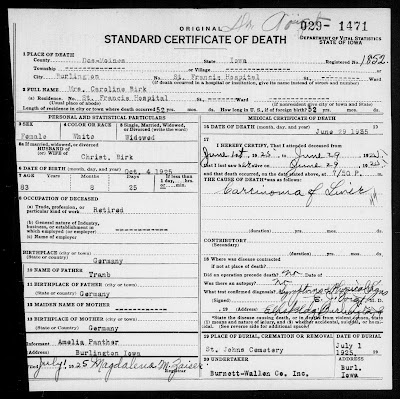 ORIGINAL
029- 1471
STANDARD CERTIFICATE OF DEATH
DEPARTMENT OF VITAL STATISTICS
STATE OF IOWA
1 PLACE OF DEATH
County Des-Moines State Iowa Registered No. 1852
Township or Village
City Burlington No. St. Francis Hospital
(If death occurred in a hospital or institution, give its name instead of street and number)
2 FULL NAME Mrs. Caroline Kirk
(a) Residence. No. St. Francis Hospital
(Usual place of abode) (If nonresident give city or town and State)
Length of residence in city or town where death occurred 52 yrs. mos. ds. How long in U. S., if of foreign birth? 52 yrs. mos. ds.
PERSONAL AND STATISTICAL PARTICULARS
3 SEX 4 COLOR OR RACE 5 Single, Married, Widowed, or Divorced (write the word)
Female White Widowed
5a If married, widowed, or divorced
HUSBAND of
(or) WIFE of
Christ. Kirk
6 DATE OF BIRTH (month, day, and year) Oct. 4 1925
7 AGE Years Months Days
83 8 25
8 OCCUPATION OF DECEASED
(a) Trade, profession, or particular kind of work Retired
(b) General nature of Industry, business, or establishment in which employed (or employer)
(c) Name of employer
9 BIRTHPLACE (city or town)
(State or country) Germany
10 NAME OF FATHER
Tramb
11 BIRTHPLACE OF FATHER (city or town)
(State or country) Germany
12 MAIDEN NAME OF MOTHER
13 BIRTHPLACE OF MOTHER (city or town)
(State or country) Germany
14 Informant Amelia Panther
(Address) Burlington Iowa
15 Filed July 1 1925 Magdalena M. Zaiser
Registrar
MEDICAL CERTIFICATE OF DEATH
16 DATE OF DEATH (month, day, and year) June 29 1925
17 I HEREBY CERTIFY, That I attended deceased from
June 1st, 1925 to June 29, 1925
that I last saw her alive on June 29, 1925
and that death occurred, on the date stated above, at 7/50 P. m.
THE CAUSE OF DEATH was as follows:
Carcinoma of Liver
(duration) yrs. mos. ds.
CONTRIBUTORY
(Secondary)
(duration) yrs. mos. ds.
18 Where was disease contracted
if not at place of death?
Did an operation precede death? No Date of
Was there an autopsy? No
What test confirmed diagnosis?
(Signed) M. D.
19 PLACE OF BURIAL, CREMATION OR REMOVAL DATE OF BURIAL
St. Johns Cemetery July 1 1925
20 UNDERTAKER ADDRESS
Burnett-Wallen Co. Inc. Burl. Iowa